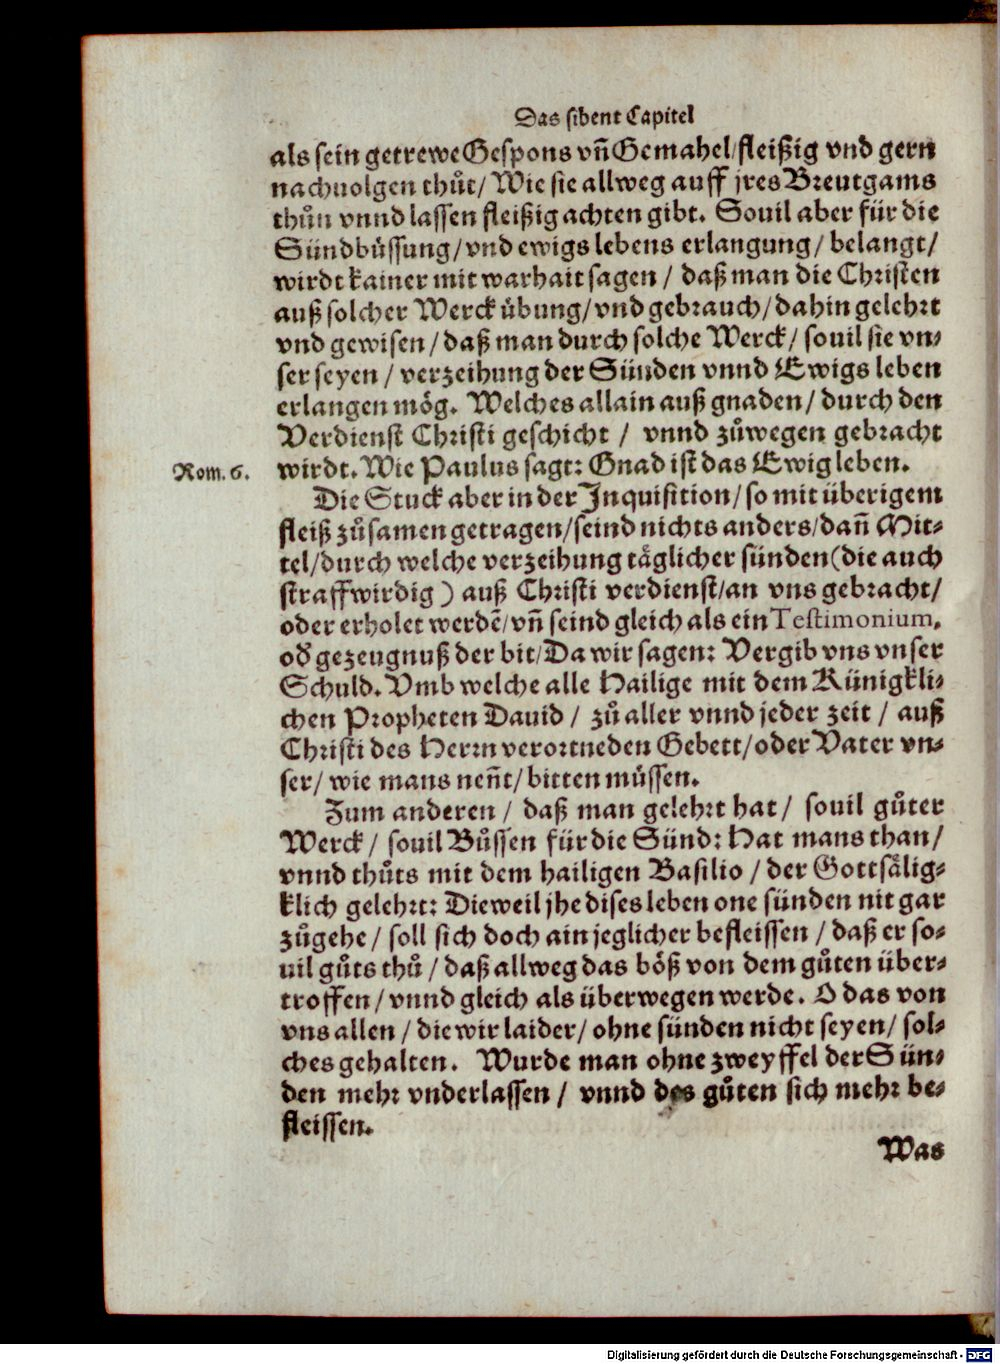 Das sibent Capitel
als sein getrewe Gespons vn̄ Gemahel/fleißig vnd gern
nachuolgen thůt/ Wie sie allweg auff jres Breutgams
thůn vnnd lassen fleißig achten gibt. Souil aber für die
Sündbůssung/vnd ewigs lebens erlangung/ belangt/
wirdt kainer mit warhait sagen / daß man die Christen
auß solcher Werck übung/vnd gebrauch/dahin gelehrt
vnd gewisen/daß man durch solche Werck/ souil sie vn-
ser seyen / verzeihung der Sünden vnnd Ewigs leben
erlangen mög. Welches allain auß gnaden/ durch den
Verdienst Christi geschicht / vnnd zůwegen gebracht
Rom. 6. wirdt. Wie Paulus sagt: Gnad ist das Ewig leben.
Die Stuck aber in der Inquisition/so mit überigem
fleiß zůsamen getragen/seind nichts anders/dan̄ Mit-
tel/durch welche verzeihung täglicher sünden(die auch
straffwirdig) auß Christi verdienst/an vns gebracht/
oder erholet werdē/vn̄ seind gleich als ein Testimonium,
oď gezeugnuß der bit/Da wir sagen: Vergib vns vnser
Schuld. Vmb welche alle Hailige mit dem Künigkli-
chen Propheten Dauid / zů aller vnnd jeder zeit / auß
Christi des Herrn verortneden Gebett/oder Vater vn-
ser/ wie mans nen̄t/bitten müssen.
Zum anderen / daß man gelehrt hat/ souil gůter
Werck/ souil Bůssen für die Sünd: Hat mans than/
vnnd thůts mit dem hailigen Basilio / der Gottsälig-
klich gelehrt: Dieweil jhe dises leben one sünden nit gar
zůgehe/ soll sich doch ain jeglicher befleissen / daß er so-
uil gůts thů/daß allweg das böß von dem gůten über-
troffen/vnnd gleich als überwegen werde. O das von
vns allen/die wir laider/ohne sünden nicht seyen/ sol-
ches gehalten. Wurde man ohne zweyffel der Sün-
den mehr vnderlassen / vnnd des gůten sich mehr be-
fleissen.
Was
Digitalisierung gefördert durch die Deutsche Forschungsgemeinschaft - DFG